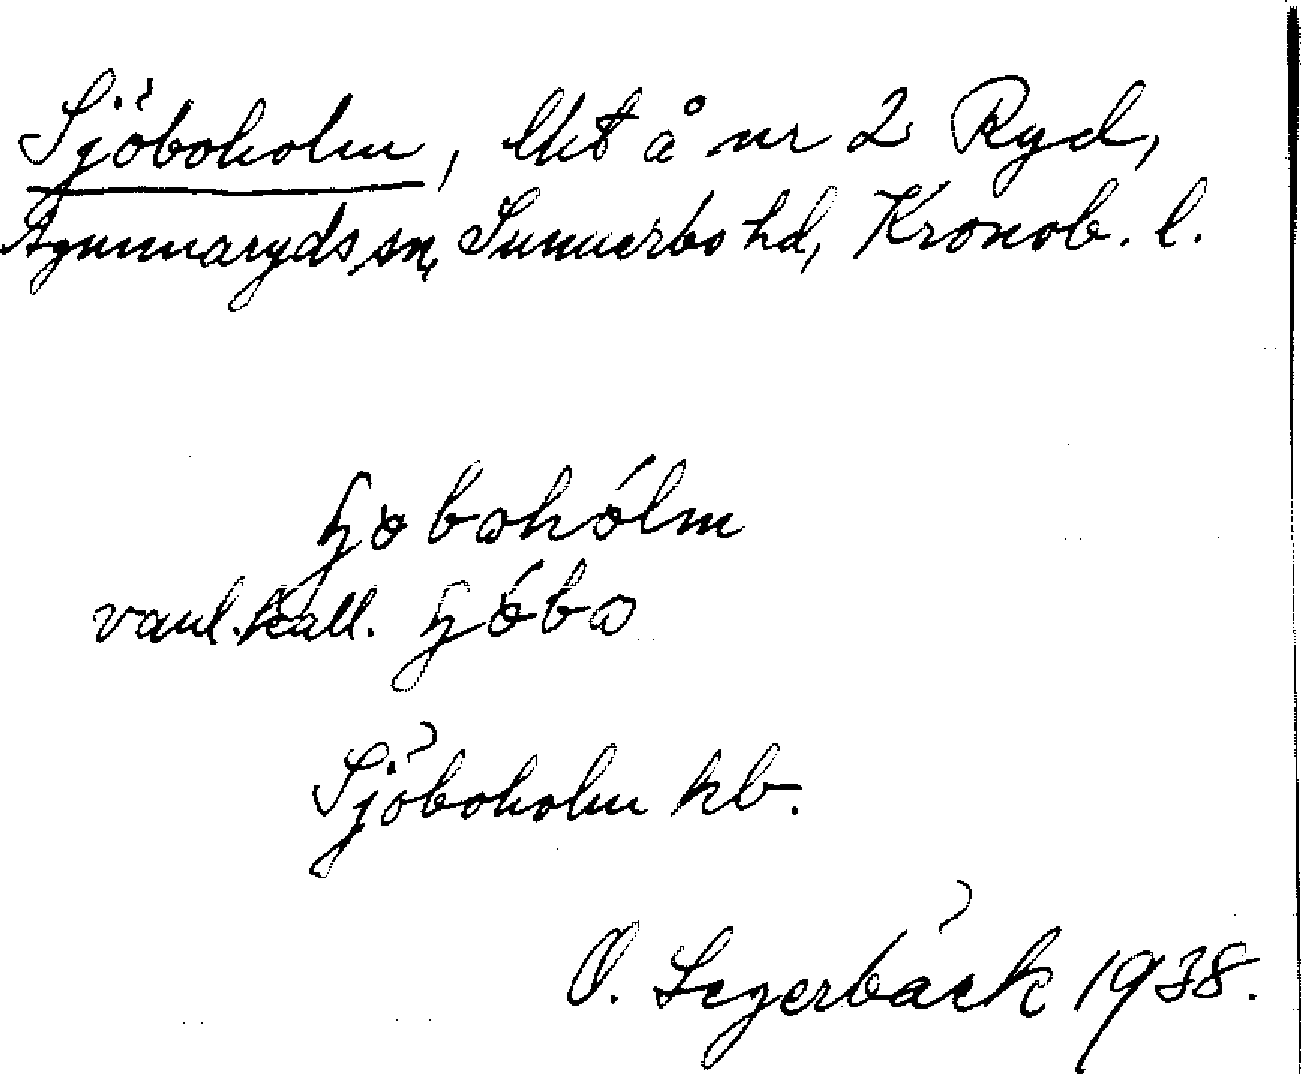 Sjöboholm, lht å nr 2 Ryd,
Agunnaryds sn, Sunnerbo hd, Kronob. l.
ɧøbohólm
vanl. kall. ɧǿbo
Sjöboholm kb.
O. Segerbäck 1938.